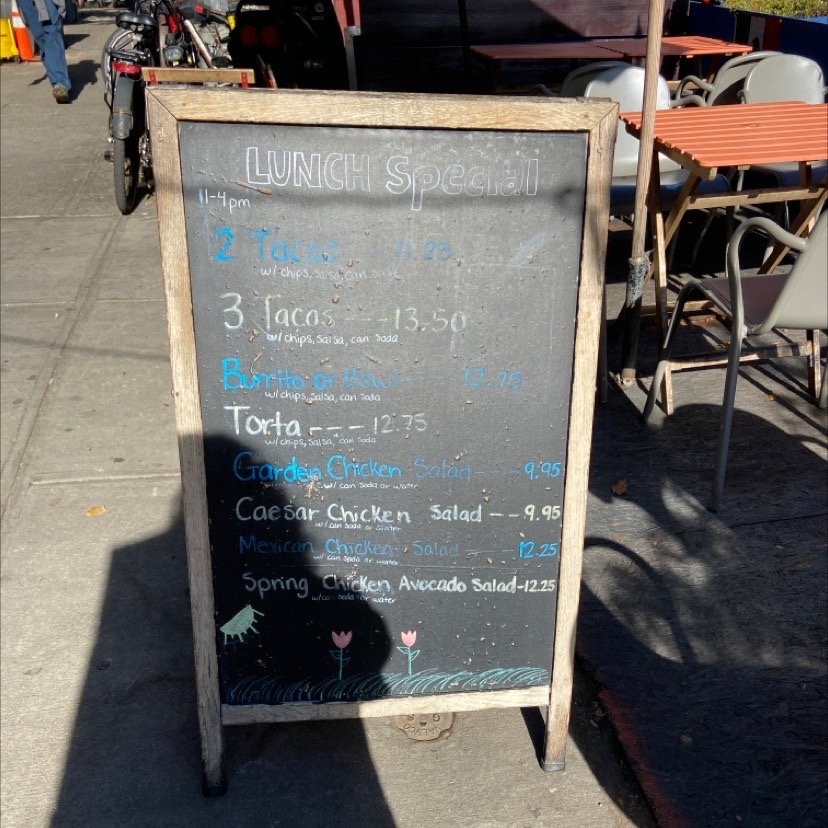 LUNCH Special
11-4pm
2 Tacos
w/chips, salsa, can soda
3 Tacos ---13.50
w/ chips, salsa, can soda
Burrito or Bowl --- 12.75
w/ chips, salsa, can soda
Torta --- 12.75
w/chips, salsa, can soda
Garden Chicken Salad --- 9.95
w/ can soda or water
Caesar Chicken Salad -- 9.95
w/ can soda or water
Mexican Chicken Salad --- 12.25
w/ can soda or water
Spring Chicken Avocado Salad-12.25
w/can soda or water